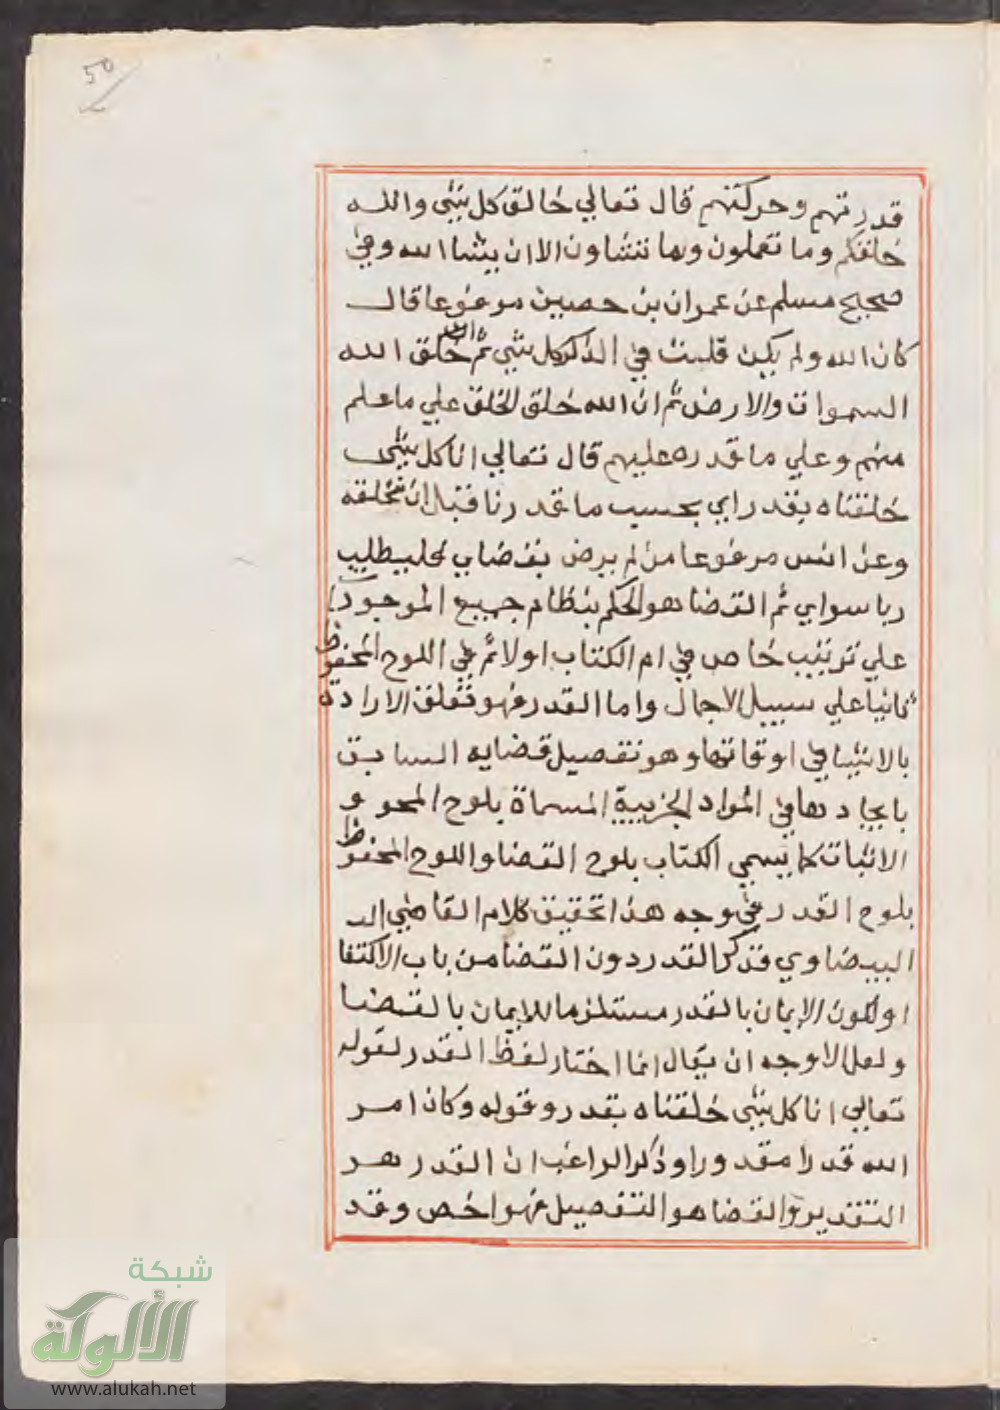 50
قدرتهم وحركتهم قال تعالي خالق كل شي والله
خلقكم وما تعملون وما تشاون الا ان يشا الله وفي
صحيح مسلم عن عمران بن حصين موعوعا قال
كان الله ولم يكن قلبت في الذكر كل شي ثم خلق الله
السموات والارض ثم ان الله خلق الخلق علي ما علم
منهم وعلي ما قدره عليهم قال تعالي انا كل شي
خلقناه بقدر اي بحسب ما قدرنا قبل ان نخلقه
وعن انس مرفوعا من لم يرض بقضاي فليطلب
ربا سواي ثم القضا هو الحكم بنظام جميع الموجودات
علي ترتيب خاص في ام الكتاب اولا ثم في اللوح المحفوظ
ثانيا علي سبيل الاجمال واما القدر فهو تعلق الارادة
بالاشيا في اوقاتها وهو تفصيل قضايه السابق
بايجادها في المواد الجزيية المسماة بلوح المحو و
الاثبات كما يسمي الكتاب بلوح القضا واللوح المحفوظ
بلوح القدر في وجه هذا تحقيق كلام القاضي الـ
البيضاوي فذكر القدر دون القضا من باب الاكتفا
او لكون الايمان بالقدر مستلزما للايمان بالقضا
ولعل الاوجه ان يقال انما اختار لفظ القدر لقوله
تعالي انا كل شي خلقناه بقدر وقوله وكان امر
الله قدرا مقدورا وذكر الراغب ان القدر هو
التقدير والقضا هو التفصيل فهو اخص وقد
شبكة
الألوكة
www.alukah.net